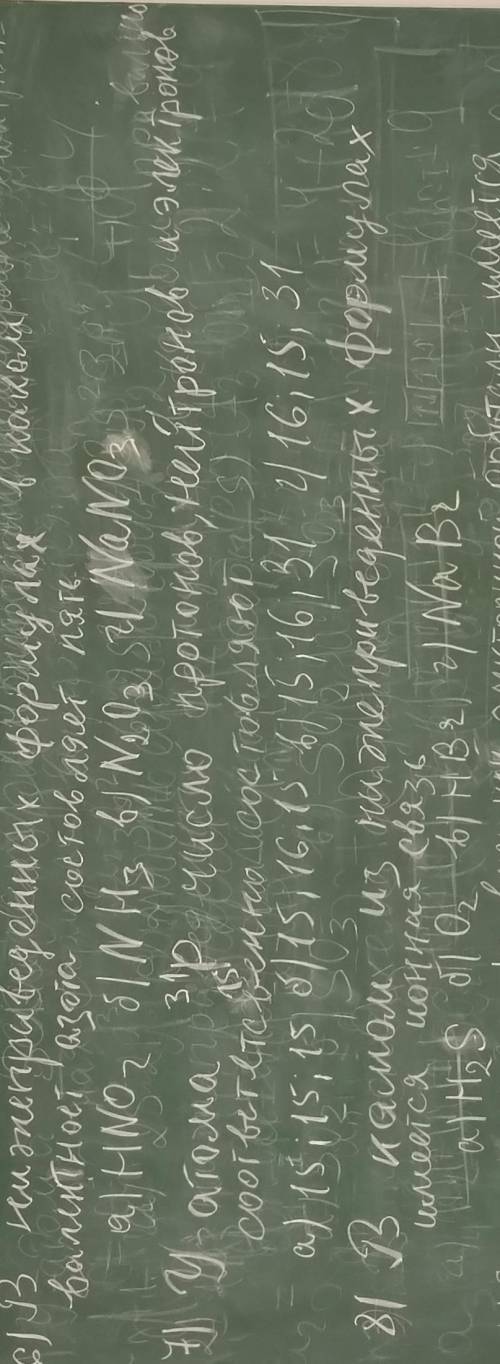 6) В нижеприведенных формулах в каком
валентност азота составляет пять
а) HNO2 б) NH3 в) N2O3 г) NaNO3
7) У атома 31 15 P число протонов, нейтронов и электронов
соответственно составляют
а) 15; 15; 15 б) 15; 16; 15 в) 15; 16; 31 г) 16; 15; 31
8) В каком из нижеприведенных формулах
имеется ионная связь
а) H2S б) O2 в) HBr г) NaBr
имеется